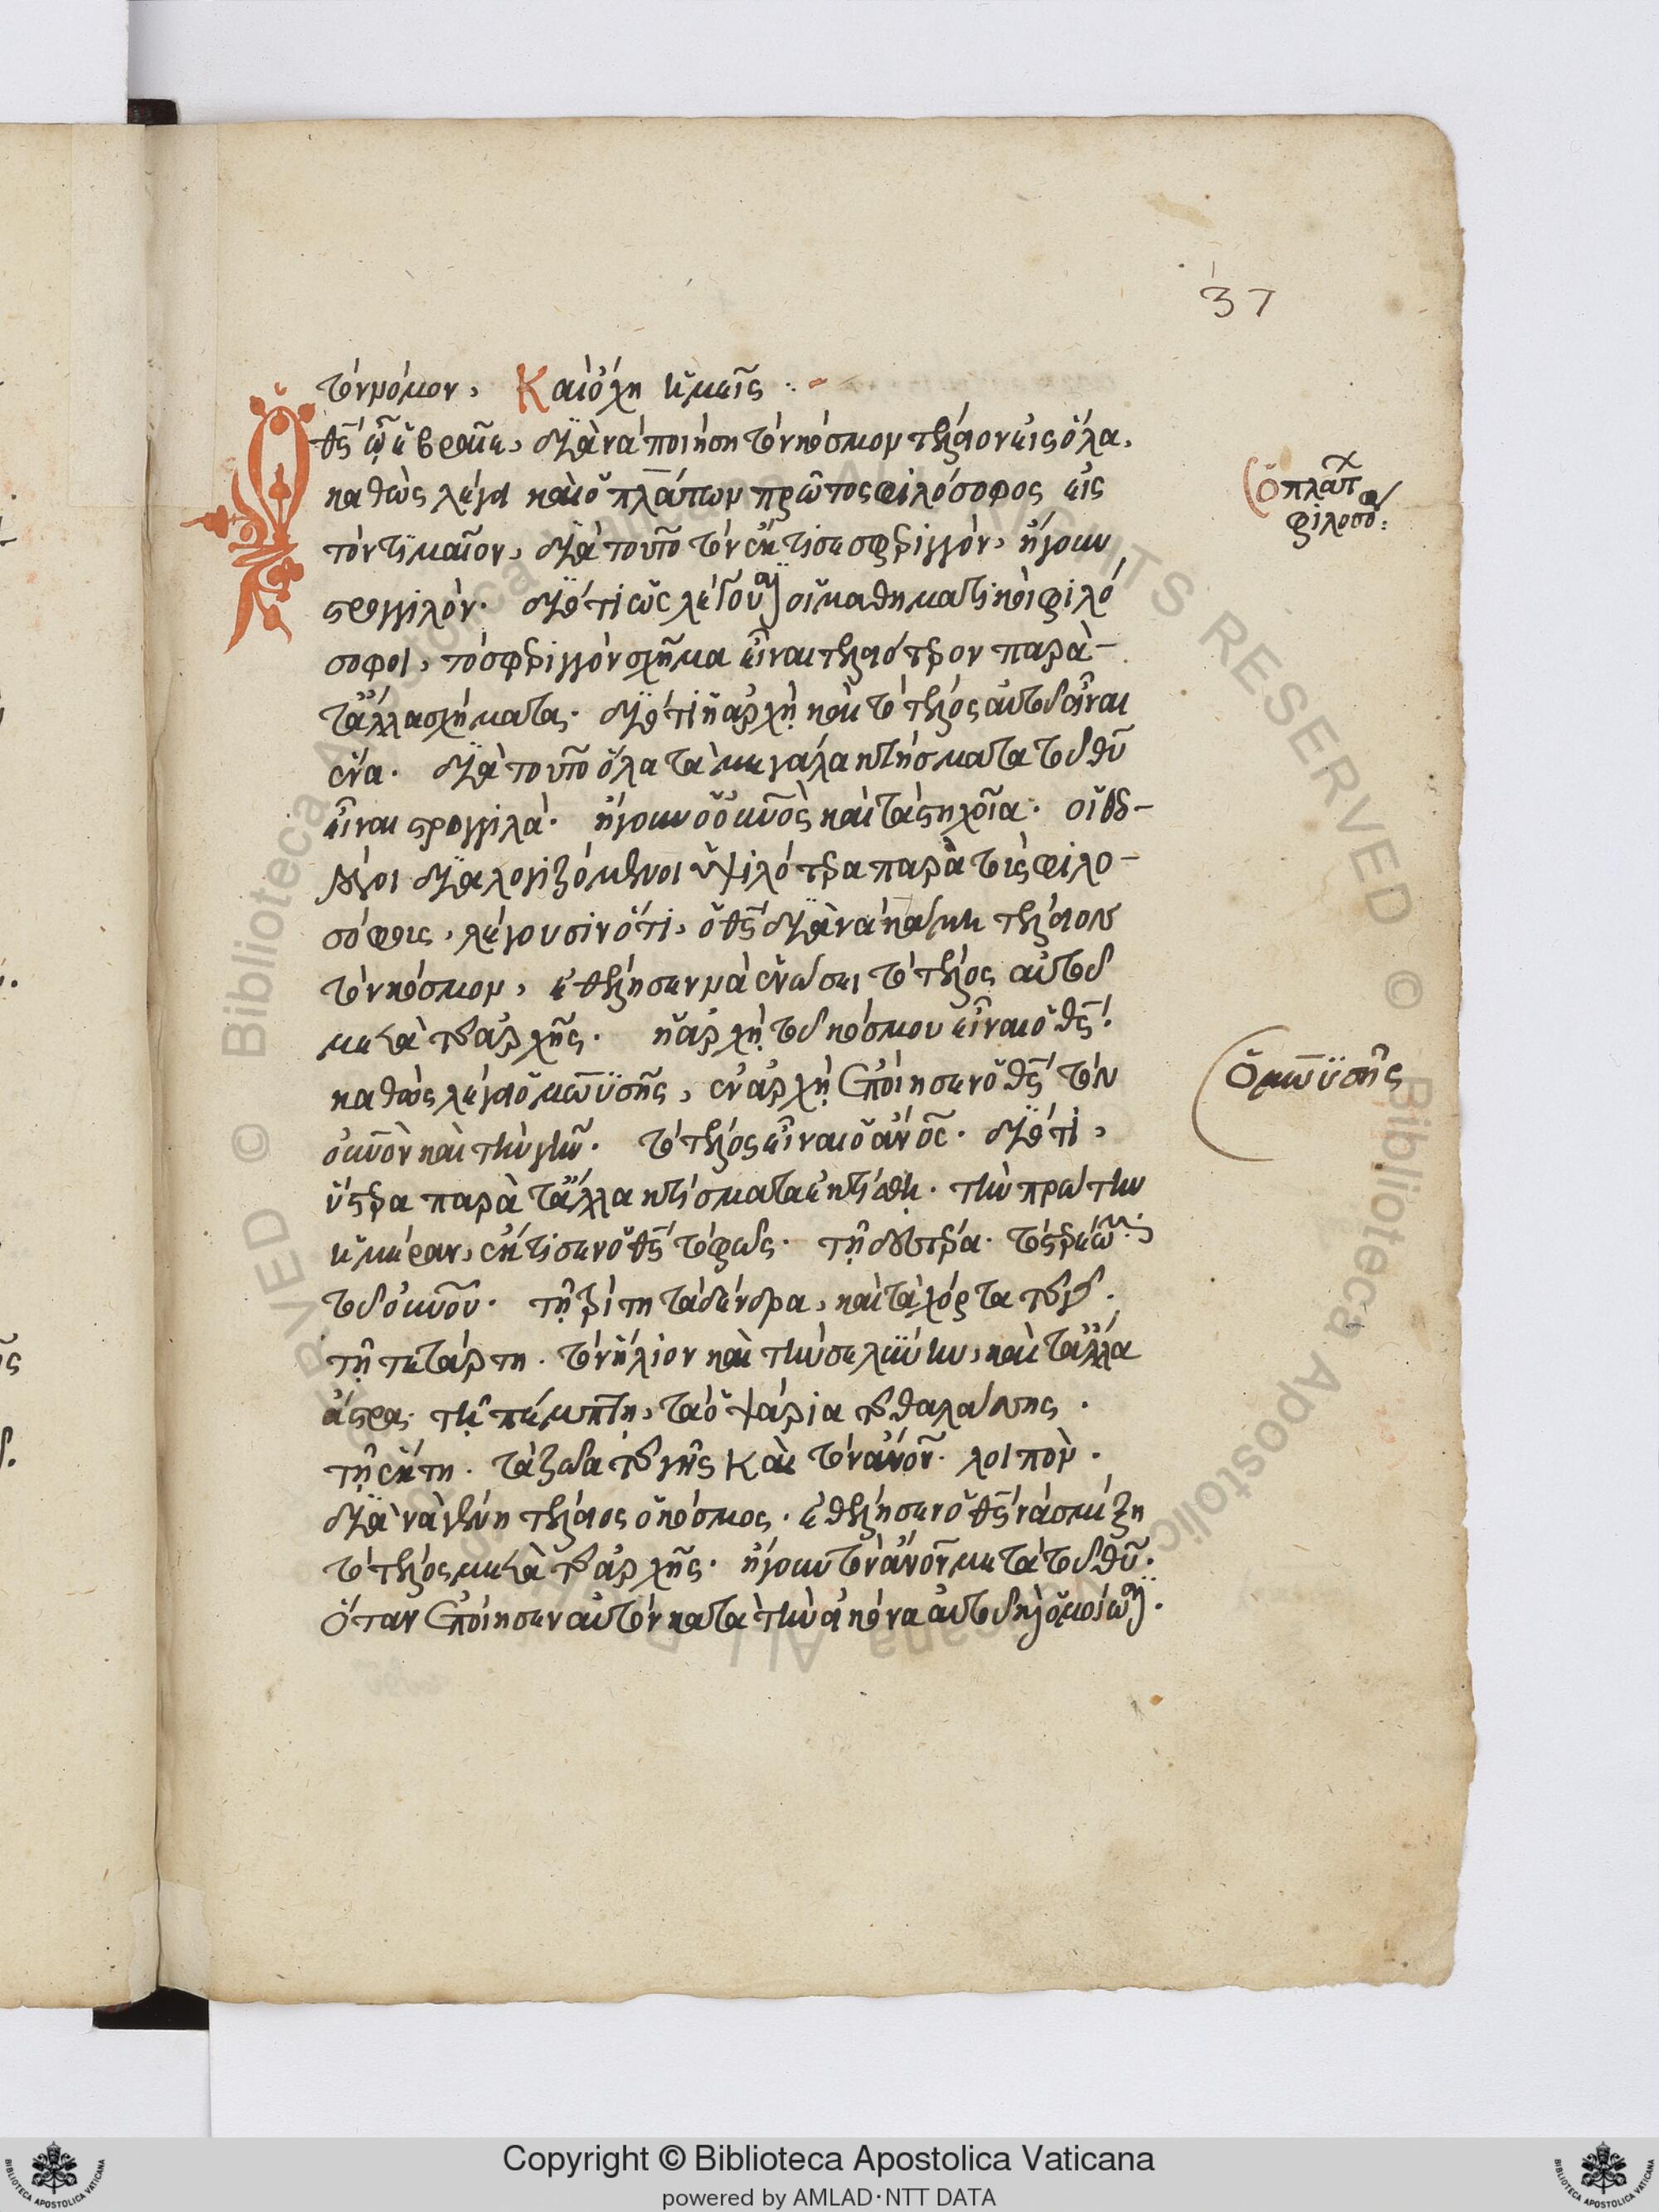 37
τὸν νόμον, Καὶ ὄχι ἡμεῖς :~
Ὁ θς̅ ὦ ἑβραῖε, διὰ νὰ ποιήση τὸν κόσμον τέλειον εἰς ὅλα,
καθὼς λέγει καὶ ὁ πλάτων πρῶτος φιλόσοφος εἰς
τὸν τίμαιον, διὰ τοῦτο τὸν ἔκτισε σφεριγγόν, ἤγουν
στρογγιλόν. διότι ὡς λέγουν οἱ μαθηματικοὶ φιλό
σοφοι, τὸ σφεριγγὸν σχῆμα εἶναι τελειότερον παρὰ
τἄλλα σχήματα. διότι ἡ ἀρχὴ καὶ τὸ τέλος αὐτοῦ εἶναι
ἕνα. διὰ τοῦτο ὅλα τὰ μεγάλα κτήσματα τοῦ θυ̅
εἶναι στρογγιλά. ἤγουν ὁ οὐνος̅ καὶ τὰ στηχοῖα. οἱ θεο-
λόγοι διαλογιζόμενοι ὑψιλότερα παρὰ τοὺς φιλο-
σόφους, λέγουσιν ὅτι, ὁ θς̅ διὰ νὰ κάμη τέλειον
τὸν κόσμον, ἐθέλησεν νὰ ἑνώσει τὸ τέλος αὐτοῦ
μετὰ τῆς ἀρχῆς. ἡ ἀρχὴ τοῦ κόσμου εἶναι ὁ θς̅.
καθὼς λέγει ὁ μωϋσῆς, ἐν ἀρχῇ ἐποίησεν ὁ θς̅ τὸν
οὐνον̅ καὶ τὴν γῆν. τὸ τέλος εἶναι ὁ ἄνος̅. διότι,
ὕστερα παρὰ τἄλλα κτίσματα ἐκτίσθη. τὴν πρώτην
ἡμέραν, ἔκτισεν ὁ θς̅ τὸ φῶς. τῇ δευτέρα. τὸ στερέωμα
τοῦ οὐνου̅. τῇ τρίτη τὰ δένδρα, καὶ τὰ χόρτα τῆς γῆς.
τῇ τετάρτη. τὸν ἥλιον καὶ τὴν σελήνην, καὶ τἄλλα
ἄστρα. τῇ πέμπτη, τὰ ὀψάρια τῆς θαλάσσης.
τῇ ἕκτη. τὰ ζῶα τῆς γῆς καὶ τὸν ἄνον̅. λοιπὸν.
διὰ νὰ γένη τέλειος ὁ κόσμος. ἐθέλησεν ὁ θς̅ νὰ σμίξη
τὸ τέλος μετὰ τῆς ἀρχῆς. ἤγουν τὸν ἄνον̅ μετὰ τοῦ θυ̅.
Ὅταν ἐποίησεν αὐτὸν κατὰ τὴν εἰκόνα αὐτοῦ κὶ ὁμοίωσιν.
Ὁ πλάτων
φιλοσο:
Ὁ μωϋσῆς